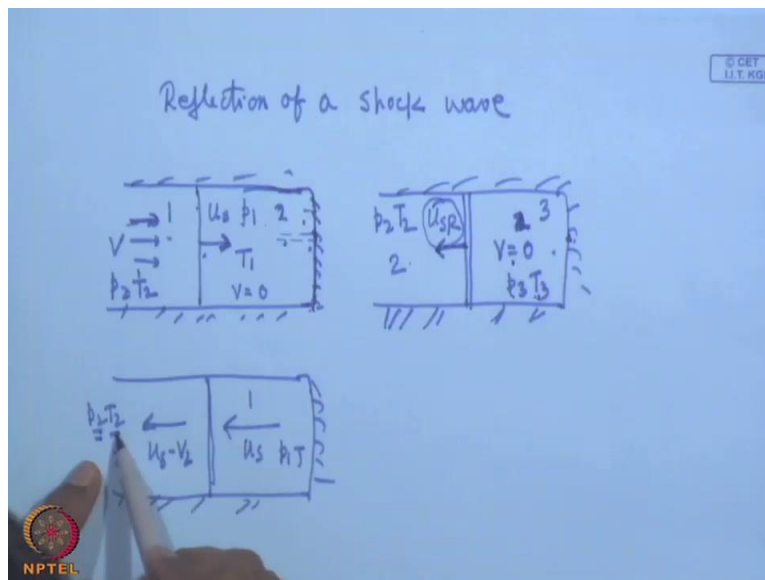 © CET
I.I.T. KGP
Reflection of a shock wave
1 Us p1 2
V
T1
p2 T2 V=0
p2 T2 USR 3
2 V=0
p3 T3
1
p2 T2
Us-V2 Us p1 T
NPTEL